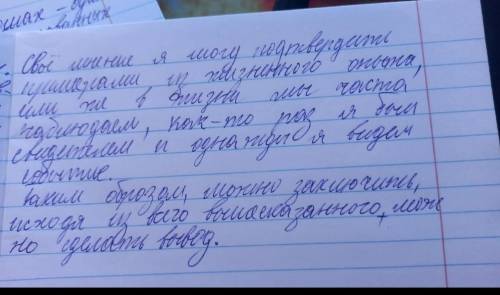 ошах - 
ованных
Своё мнение я могу подтвердить
примерами из жизненного опыта,
или же в жизни мы часто
наблюдаем, как-то раз я был
свидетелем и однажды я видел
событие.
Таким образом, можно заключить,
исходя из всего вышесказанного, мож
но сделать вывод.